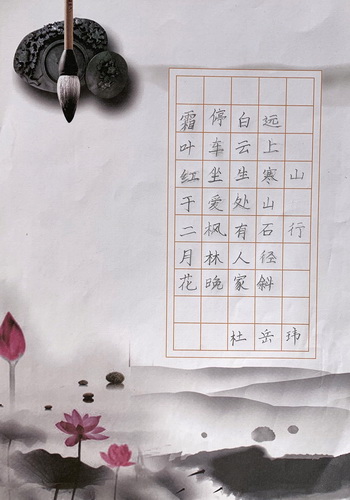 山行
远上寒山石径斜
白云生处有人家
停车坐爱枫林晚
霜叶红于二月花
杜岳玮